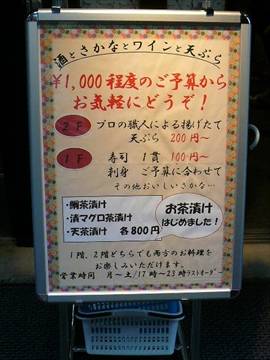 酒とさかなとワインと天ぷら
¥1,000程度のご予算から
お気軽にどうぞ!
2F プロの職人による揚げたて
天ぷら 200円〜
1F 寿司 1貫 100円〜
刺身 ご予算に合わせて
その他おいしいさかな…
・鯛茶漬け
・漬マグロ茶漬け
・天茶漬け 各800円
お茶漬け
はじめました!
1階、2階どちらでも両方のお料理を
お楽しみいただけます。
営業時間 月〜土/17時〜23時ラストオーダー